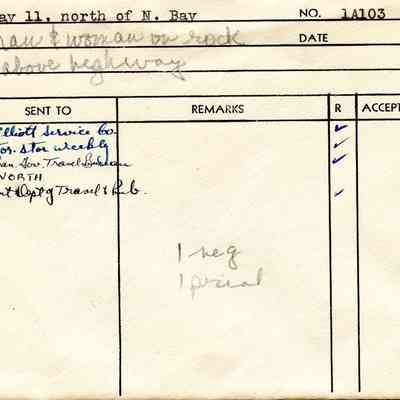 ay 11, north of N. Bay NO. 1A103
man & woman on rock DATE
above highway
SENT TO REMARKS R ACCEPT
Elliott Service Co.
Tor. Star Weekly
Can. Gov. Travel Bureau
NORTH
nt Dept of Travel & Pub.
1 neg
1